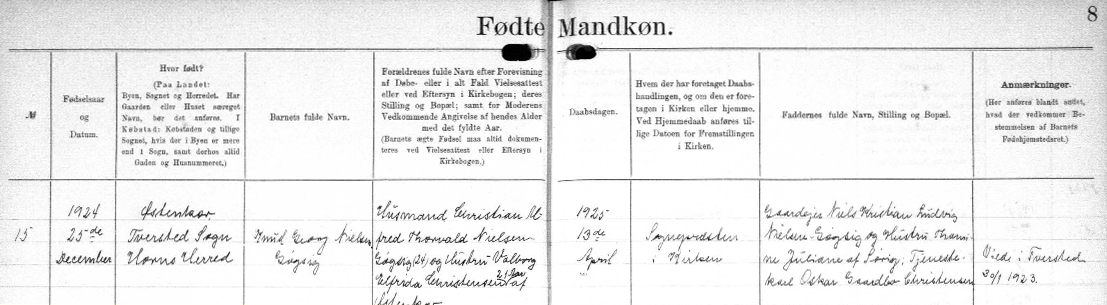 8
Fødte Mandkøn.
№
Fødselsaar
og
Datum.
Hvor født?
(Paa Landet:
Byen, Sognet og Herredet. Har
Gaarden eller Huset særeget
Navn, bør det anføres. I
Købstad: Købstaden og tillige
Sognet, hvis der i Byen er mere
end 1 Sogn, samt derhos altid
Gaden og Husnummeret.)
Barnets fulde Navn.
Forældrenes fulde Navn efter Forevisning
af Døbe- eller i alt Fald Vielsesattest
eller ved Eftersyn i Kirkebogen; deres
Stilling og Bopæl; samt for Moderens
Vedkommende Angivelse af hendes Alder
med det fyldte Aar.
(Barnets ægte Fødsel maa altid dokumen-
teres ved Vielsesattest eller Eftersyn i
Kirkebogen.)
Daabsdagen.
Hvem der har foretaget Daabs-
handlingen, og om den er fore-
tagen i Kirken eller hjemme.
Ved Hjemmedaab anføres til-
lige Datoen for Fremstillingen
i Kirken.
Faddernes fulde Navn, Stilling og Bopæl.
Anmærkninger.
(Her anføres blandt andet,
hvad der vedkommer Be-
stemmelsen af Barnets
Fødehjemstedsret.)
15
1924
25de
December
Østenkær
Tversted Sogn
Horns Herred
Knud Georg Nielsen
Gøgsig
Husmand Christian Al
fred Thorvald Nielsen
Gøgsig (24) og Hustru Valborg
Elfrida Christensen 21 Aar af
Østenkær
1925
13de
April
Sognepræsten
i Kirken
Gaardejer Niels Kristian Ludvig
Nielsen Gøgsig og Hustru Thami-
ne Juliane af Sørig; Tjeneste-
karl Oskar Gaardbo Christensen
Viede i Tversted
30/1 1923.